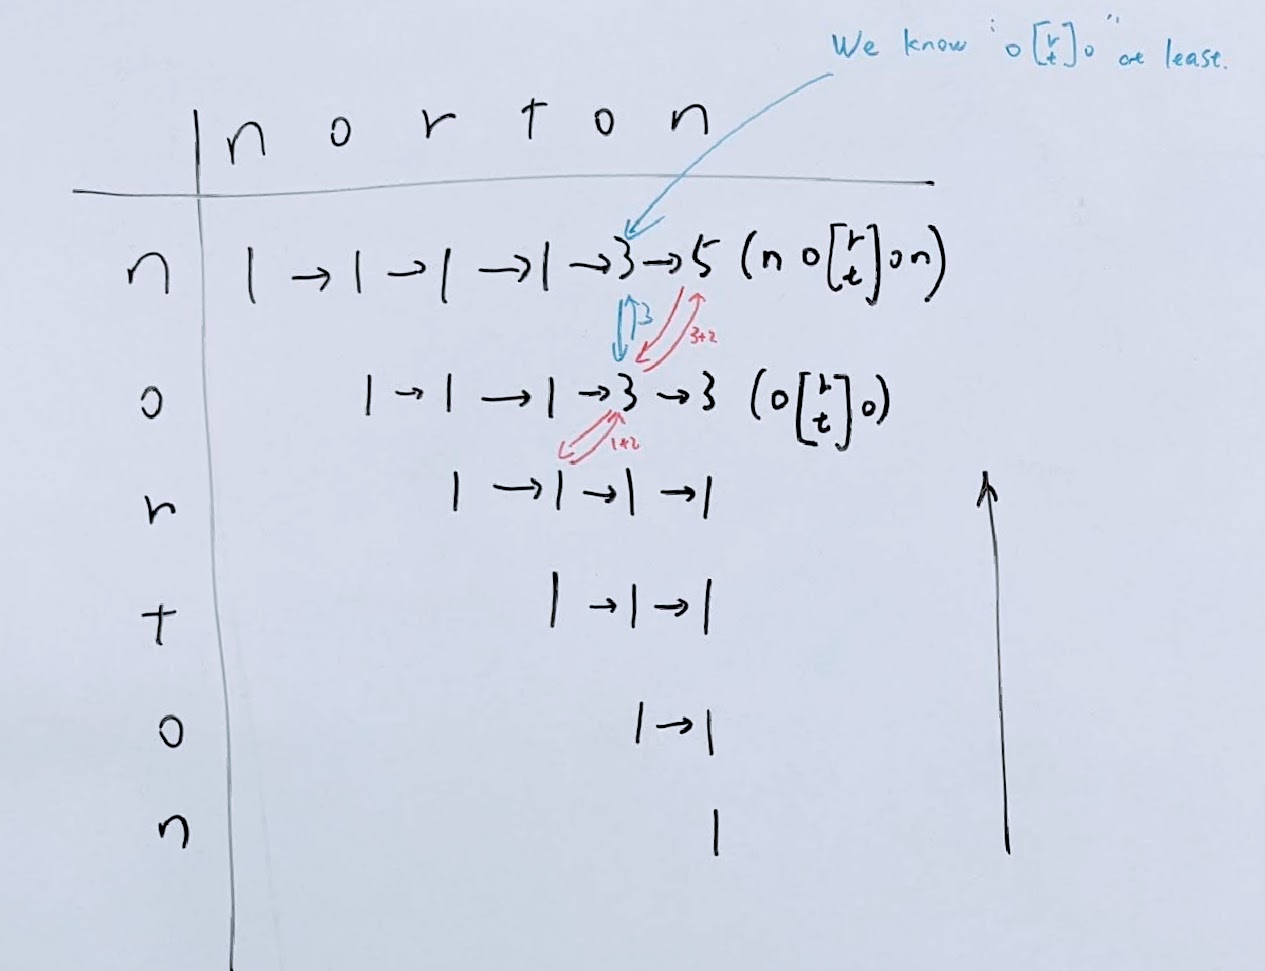 We know "o[r t]o" at least.
n o r t o n
n 1 → 1 → 1 → 1 → 3 → 5 (n o [r t] o n)
3 3+2
o 1 → 1 → 1 → 3 → 3 (o [r t] o)
1+2
r 1 → 1 → 1 → 1
t 1 → 1 → 1
o 1 → 1
n 1